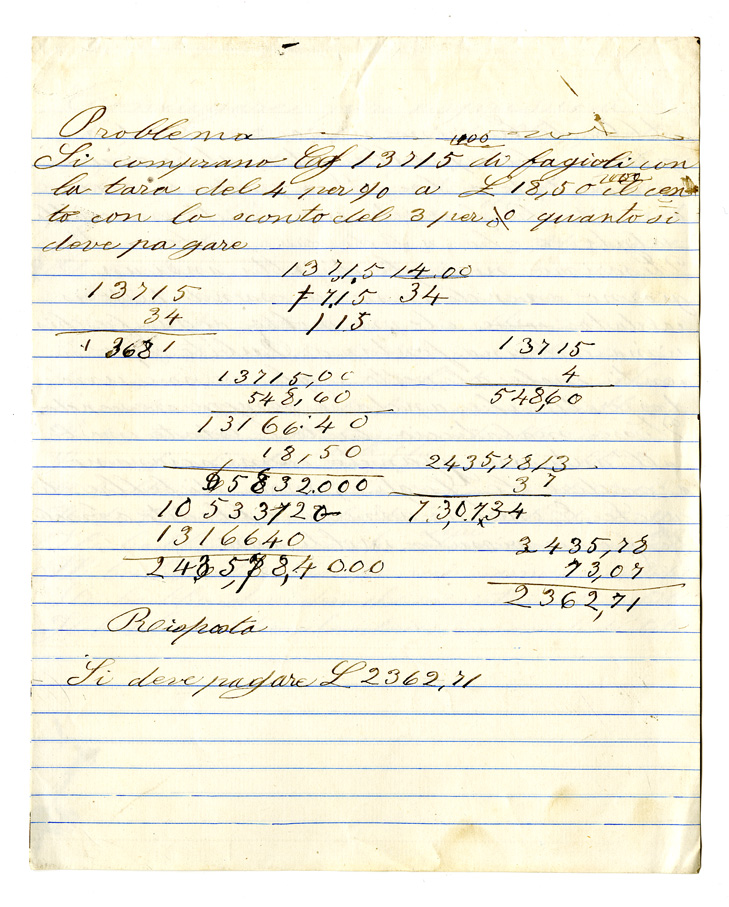 Problema
1000
Si comprano Cg 13715 di fagioli con
la tara del 4 per % a £ 18,50 il cen-
1000
to con lo sconto del 3 per % quanto si
deve pagare
13715 14.00
1715 34
115
13715
34
1 3681
13715
4
548,60
13715,00
548,60
13166.40
18,50
65832.000
10533120
1316640
2435,78,4000
2435,7813
3
7.30,734
2435,78
73,07
2362,71
Risposta
Si deve pagare £ 2362,71